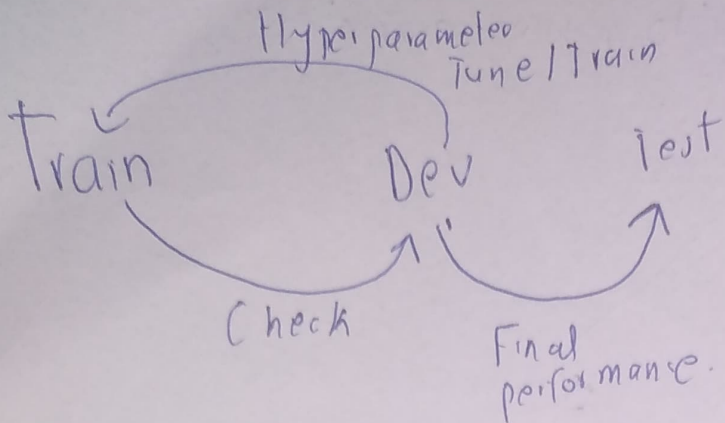 Hyperparameter
Tune/Train
Train
Dev
Test
Check
Final
performance.